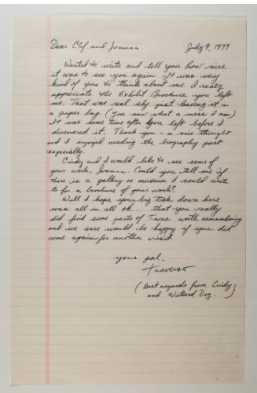 Dear Clif and Joanna July 9, 1979
Wanted to write and tell you how nice
it was to see you again. It was very
kind of you to think about me. I really
appreciate the Exhibit Brochure you left
me. That was real shy just leaving it in
a paper bag (you saw what a mess I am)
It was some time after you left before I
discovered it. Thank you - a nice thought
and I enjoyed reading the biography part
especially.
Cindy and I would like to see some of
your work, Joanna. Could you tell me if
there is a gallery or museum I could write
to for a brochure of your work?
Well I hope your big trek down here
was all in all ok... that you really
did find some parts of Texas worth remembering
and we sure would be happy if you did
come again for another visit.
your pal -
(Best regards from Cindy
and Willard Dog.)